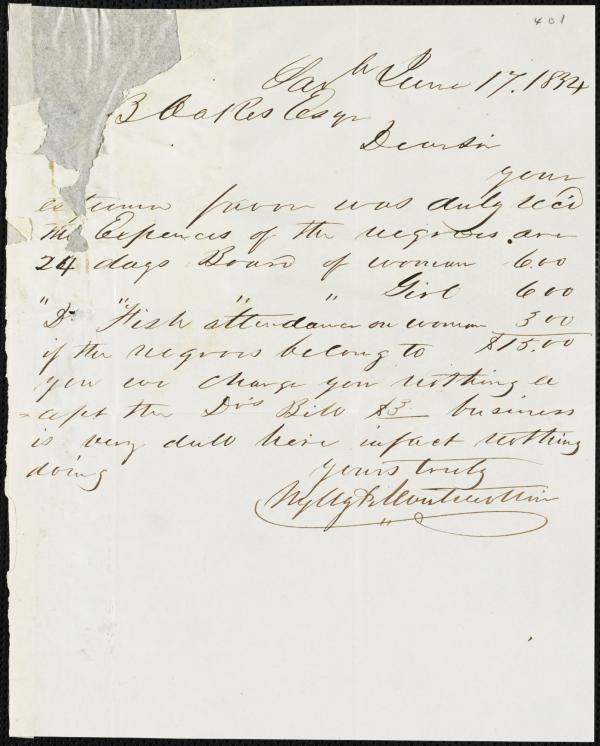 401
Savh June 17. 1854
Z B Oakes Esqr
Dear Sir
your
esteemed favor was duly rec'd
the Expences of the negroes are
24 days Board of woman 6.00
" " " " Girl 6.00
Dr Fish attendance on woman 3.00
if the negroes belong to $15.00
you we charge you nothing ex
=cept the Drs Bill $3 business
is very dull here infact nothing
doing
yours truly
Wylly & Montmollin